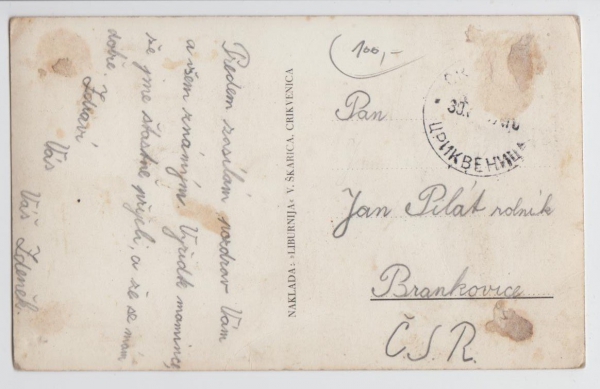 Předem zasílám pozdrav Vám
a všem známým. Vyřiďte mamince,
že jsme šťastně přijeli, a že se mám
dobře.
Zdraví
Vás
Váš Zdeněk.
NAKLADA: »LIBURNIJA« V. ŠKARICA, CRIKVENICA
100,-
ЦРИКВЕНИЦА
Pan
Jan Pilát rolník
Brankovice
Č.S.R.